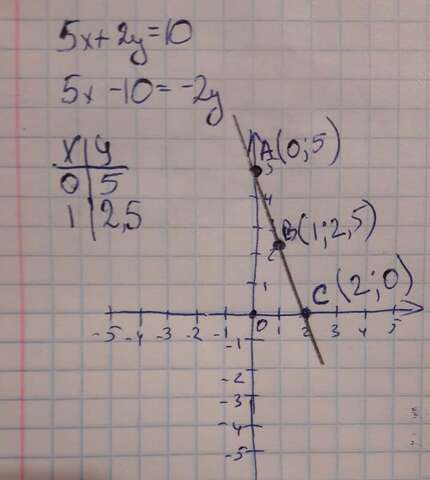 5x+2y=10
5x-10=-2y
x y
0 5
1 2,5
A(0;5)
5
4
B(1;2,5)
2
1
C(2;0)
-5 -4 -3 -2 -1 0 1 2 3 4 5
-1
-2
-3
-4
-5